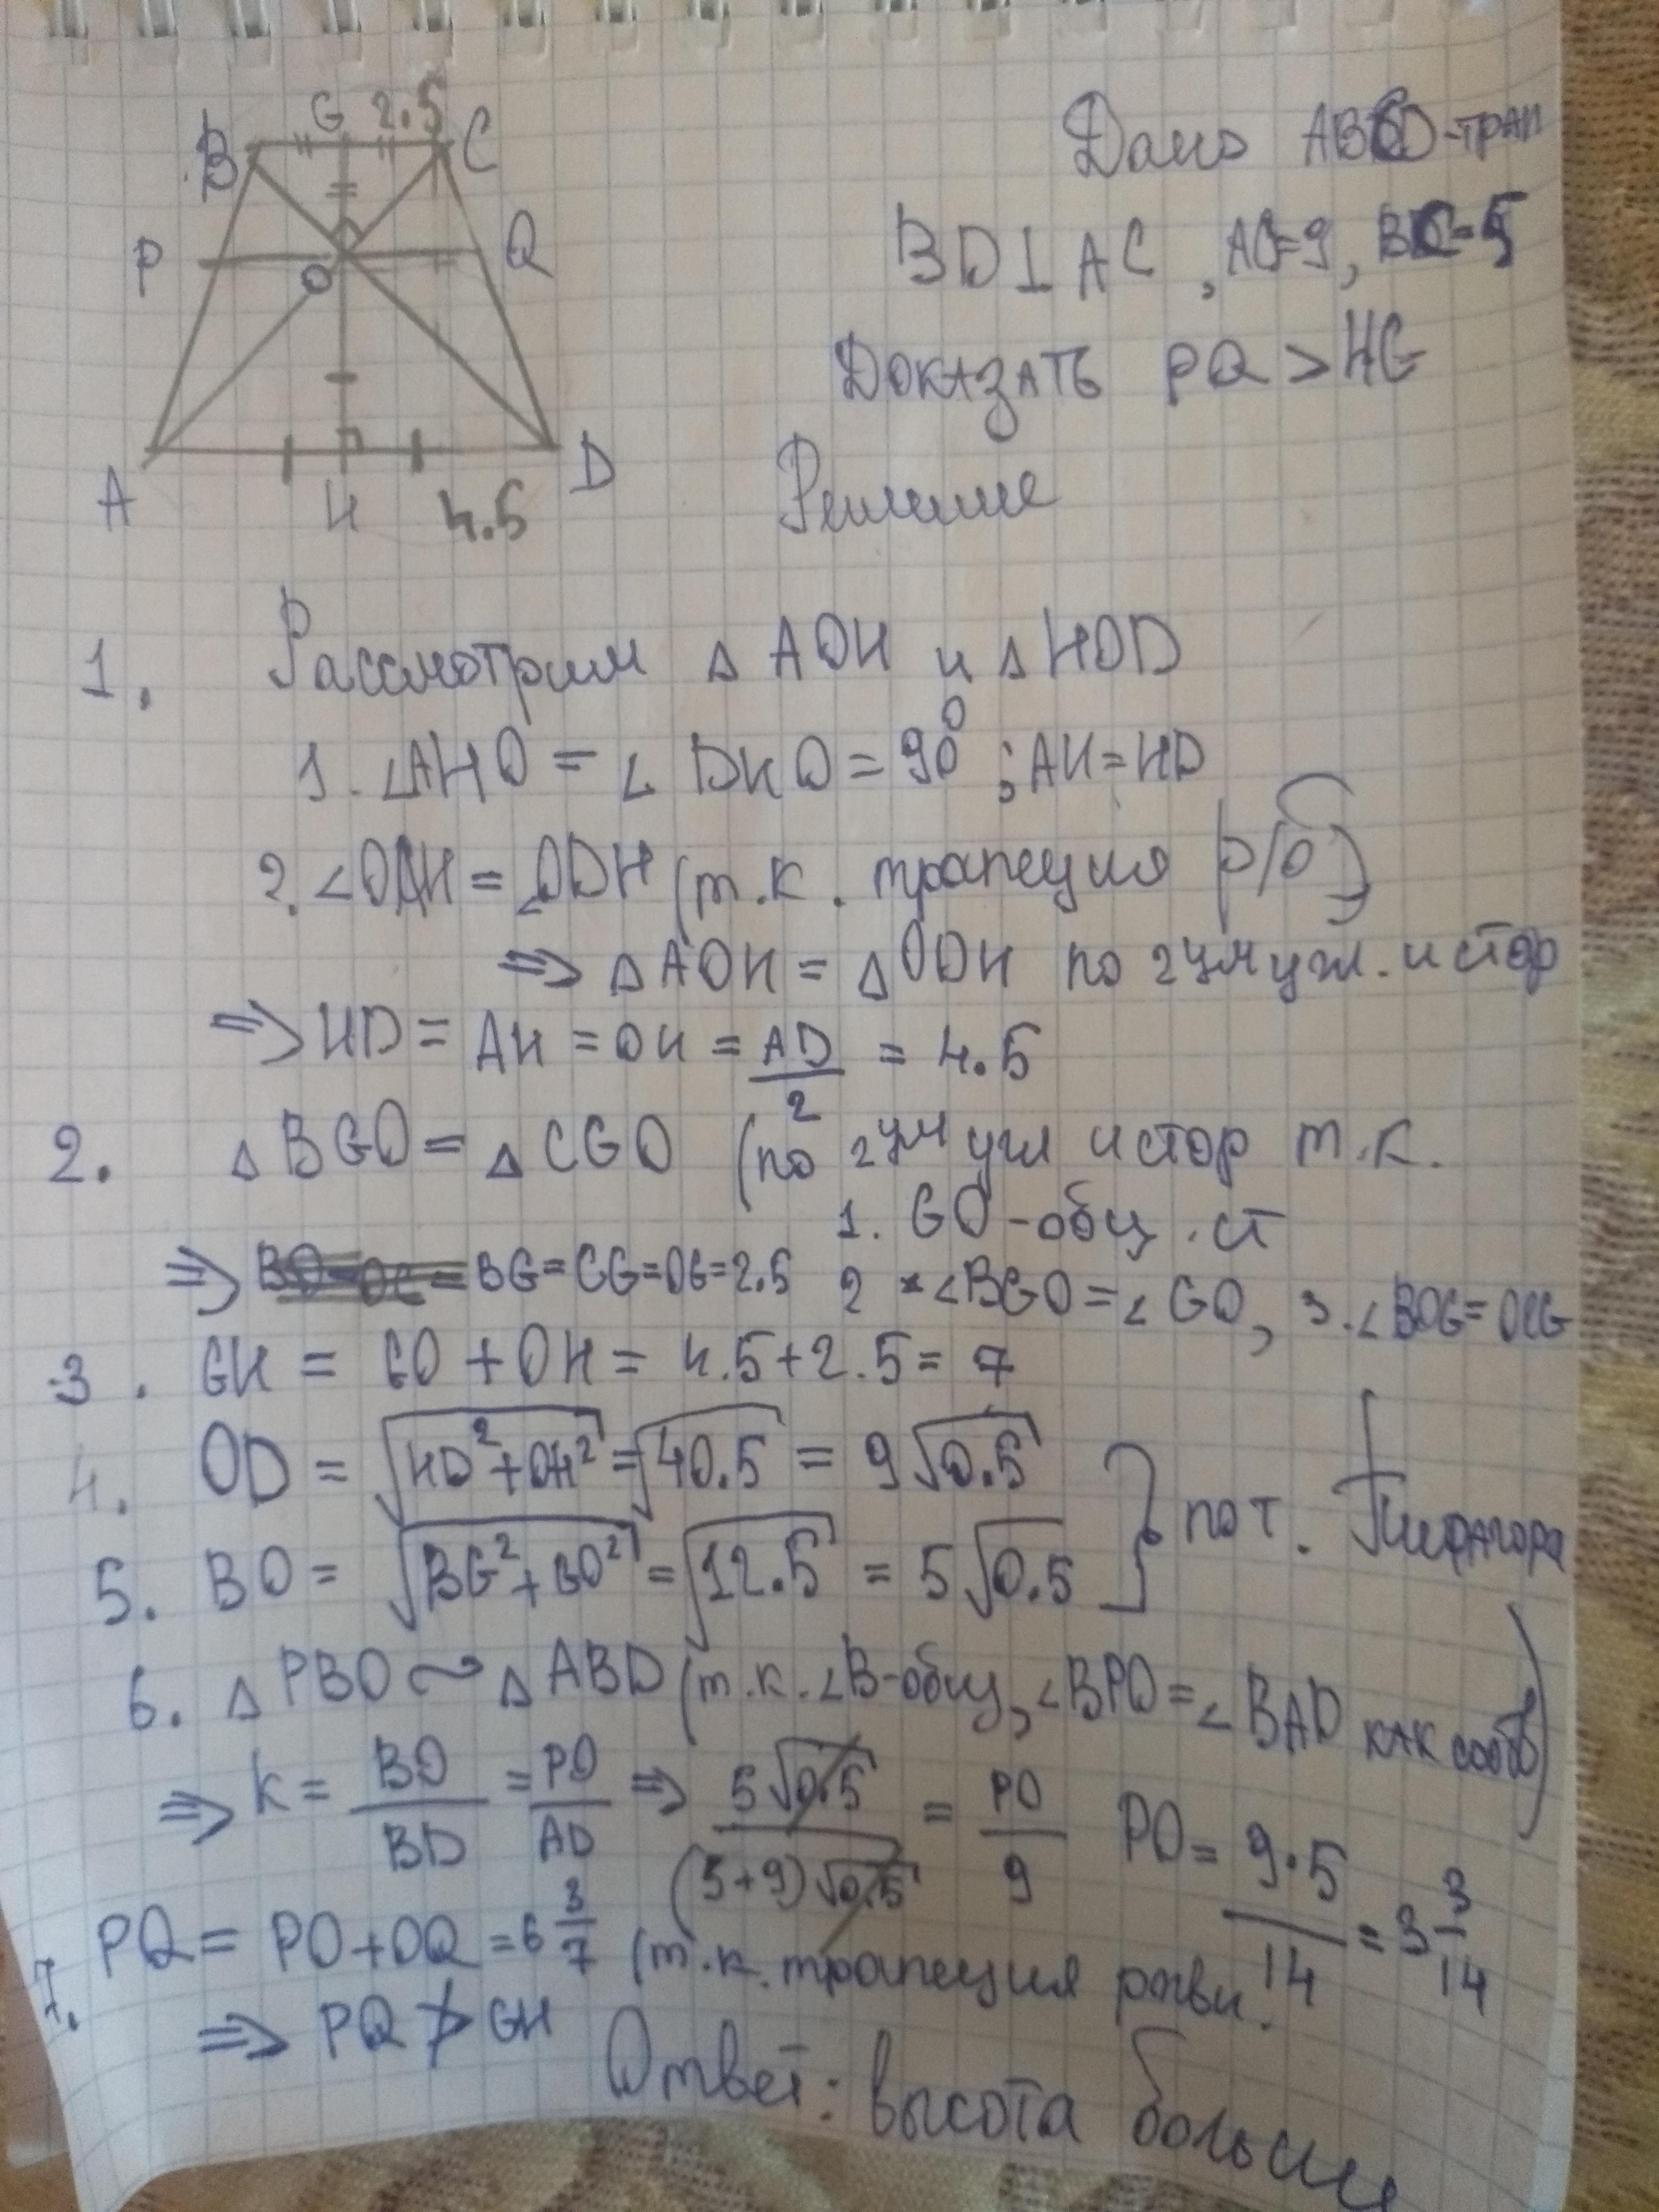 G 2.5
B C
P Q
O
A H 4.5 D
Дано ABCD-трап
BD⊥AC, AD=9, BC=5
Доказать PQ > HG
Решение
1. Рассмотрим △ AOH и △ HOD
1. ∠AHO = ∠DHO = 90° ; AH = HD
2. ∠OAH = ∠ODH (т.к. трапеция р/б)
⇒ △AOH = △ODH по 2ум угл. и стор
⇒ HD = AH = OH = AD/2 = 4.5
2. △BGO = △CGO (по 2ум угл и стор т.к.
1. GO - общ. ст
⇒ BG=CG=OG=2.5 2 ∠BGO = ∠GO, 3. ∠BOG = OCG
3. GH = GO + OH = 4.5+2.5 = 7
4. OD = √(HD²+OH²) = √40.5 = 9√0.5
5. BO = √(BG²+GO²) = √12.5 = 5√0.5 } по т. Пифагора
6. △PBO ~ △ABD (т.к. ∠B-общ, ∠BPO = ∠BAD как соотв)
⇒ k = BO/BD = PO/AD ⇒ 5√0.5/(5+9)√0.5 = PO/9 PO = 9·5/14 = 3 3/14
7. PQ = PO+OQ = 6 3/7 (т.к. трапеция равн.
⇒ PQ ≯ GH
Ответ: высота больше